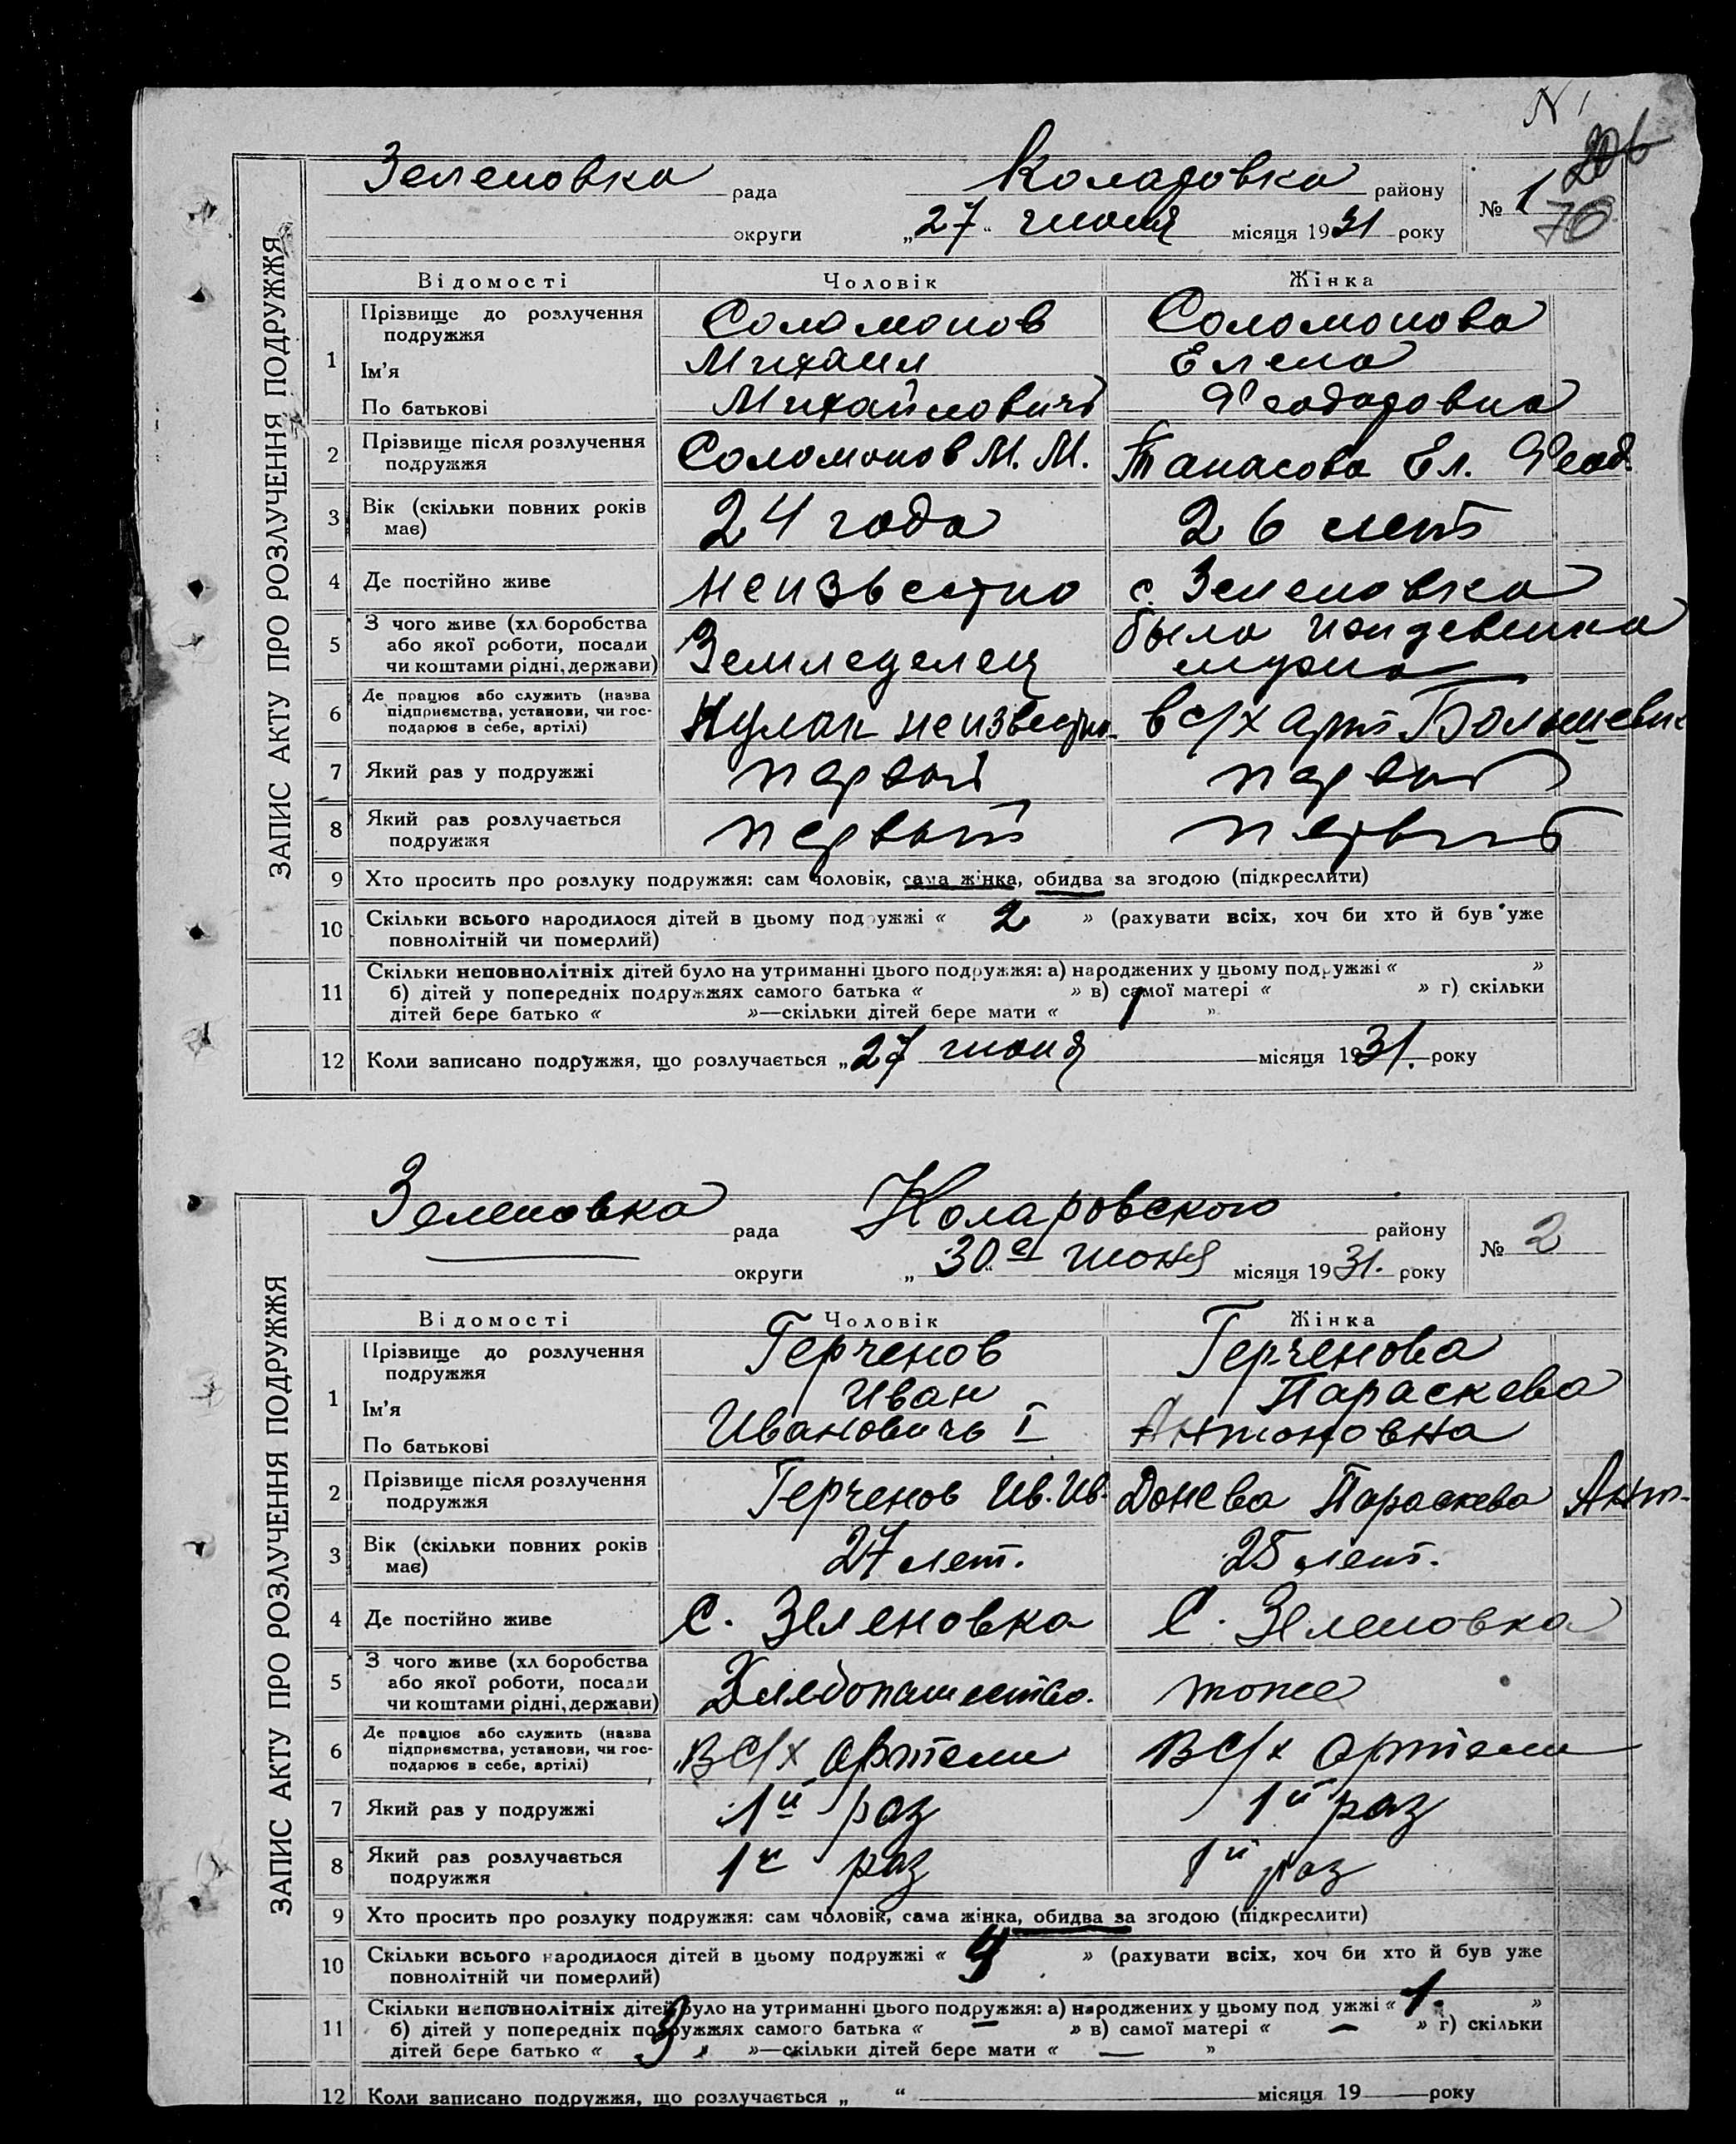 N 1
206
Зеленовка рада Коларовка району № 1
70
округи „27“ июня місяця 1931 року
ЗАПИС АКТУ ПРО РОЗЛУЧЕННЯ ПОДРУЖЖЯ
Відомості Чоловік Жінка
1 Прізвище до розлучення подружжя Соломонов Соломонова
Ім'я Михаил Елена
По батькові Михайловичъ Феодоровна
2 Прізвище після розлучення подружжя Соломонов М. М. Танасова Ел. Феод.
3 Вік (скільки повних років має) 24 года 26 лет
4 Де постійно живе неизвестно с. Зеленовка
5 З чого живе (хл.боробства або якої роботи, посади чи коштами рідні, держави) Земледелец была иждевенка мужа
6 Де працює або служить (назва підприємства, установи, чи господарює в себе, артілі) Кулак неизвестно в с/х арт Большевик
7 Який раз у подружжі первый первый
8 Який раз розлучається подружжя первый первый
9 Хто просить про розлуку подружжя: сам чоловік, сама жінка, обидва за згодою (підкреслити)
10 Скільки всього народилося дітей в цьому подружжі « 2 » (рахувати всіх, хоч би хто й був уже
повнолітній чи померлий)
11 Скільки неповнолітніх дітей було на утриманні цього подружжя: а) народжених у цьому подружжі « »
б) дітей у попередніх подружжях самого батька « » в) самої матері « » г) скільки
дітей бере батько « »—скільки дітей бере мати « 1 »
12 Коли записано подружжя, що розлучається „27 июня місяця 1931. року
Зеленовка рада Коларовского району № 2
округи „30е“ июня місяця 1931. року
ЗАПИС АКТУ ПРО РОЗЛУЧЕННЯ ПОДРУЖЖЯ
Відомості Чоловік Жінка
1 Прізвище до розлучення подружжя Герченов Герченова
Ім'я Иван Параскева
По батькові Ивановичъ I Антоновна
2 Прізвище після розлучення подружжя Герченов Ив. Ив. Донева Параскева Ант.
3 Вік (скільки повних років має) 27 лет. 25 лет.
4 Де постійно живе С. Зеленовка С. Зеленовка
5 З чого живе (хл.боробства або якої роботи, посади чи коштами рідні, держави) Хлебопашество. тоже
6 Де працює або служить (назва підприємства, установи, чи господарює в себе, артілі) В С/х артели В С/х артели
7 Який раз у подружжі 1й раз 1й раз
8 Який раз розлучається подружжя 1й раз 1й раз
9 Хто просить про розлуку подружжя: сам чоловік, сама жінка, обидва за згодою (підкреслити)
10 Скільки всього народилося дітей в цьому подружжі « 4 » (рахувати всіх, хоч би хто й був уже
повнолітній чи померлий)
11 Скільки неповнолітніх дітей було на утриманні цього подружжя: а) народжених у цьому подружжі « 1. »
б) дітей у попередніх подружжях самого батька « — » в) самої матері « — » г) скільки
дітей бере батько « 3 »—скільки дітей бере мати « — »
12 Коли записано подружжя, що розлучається „ “ місяця 19 року